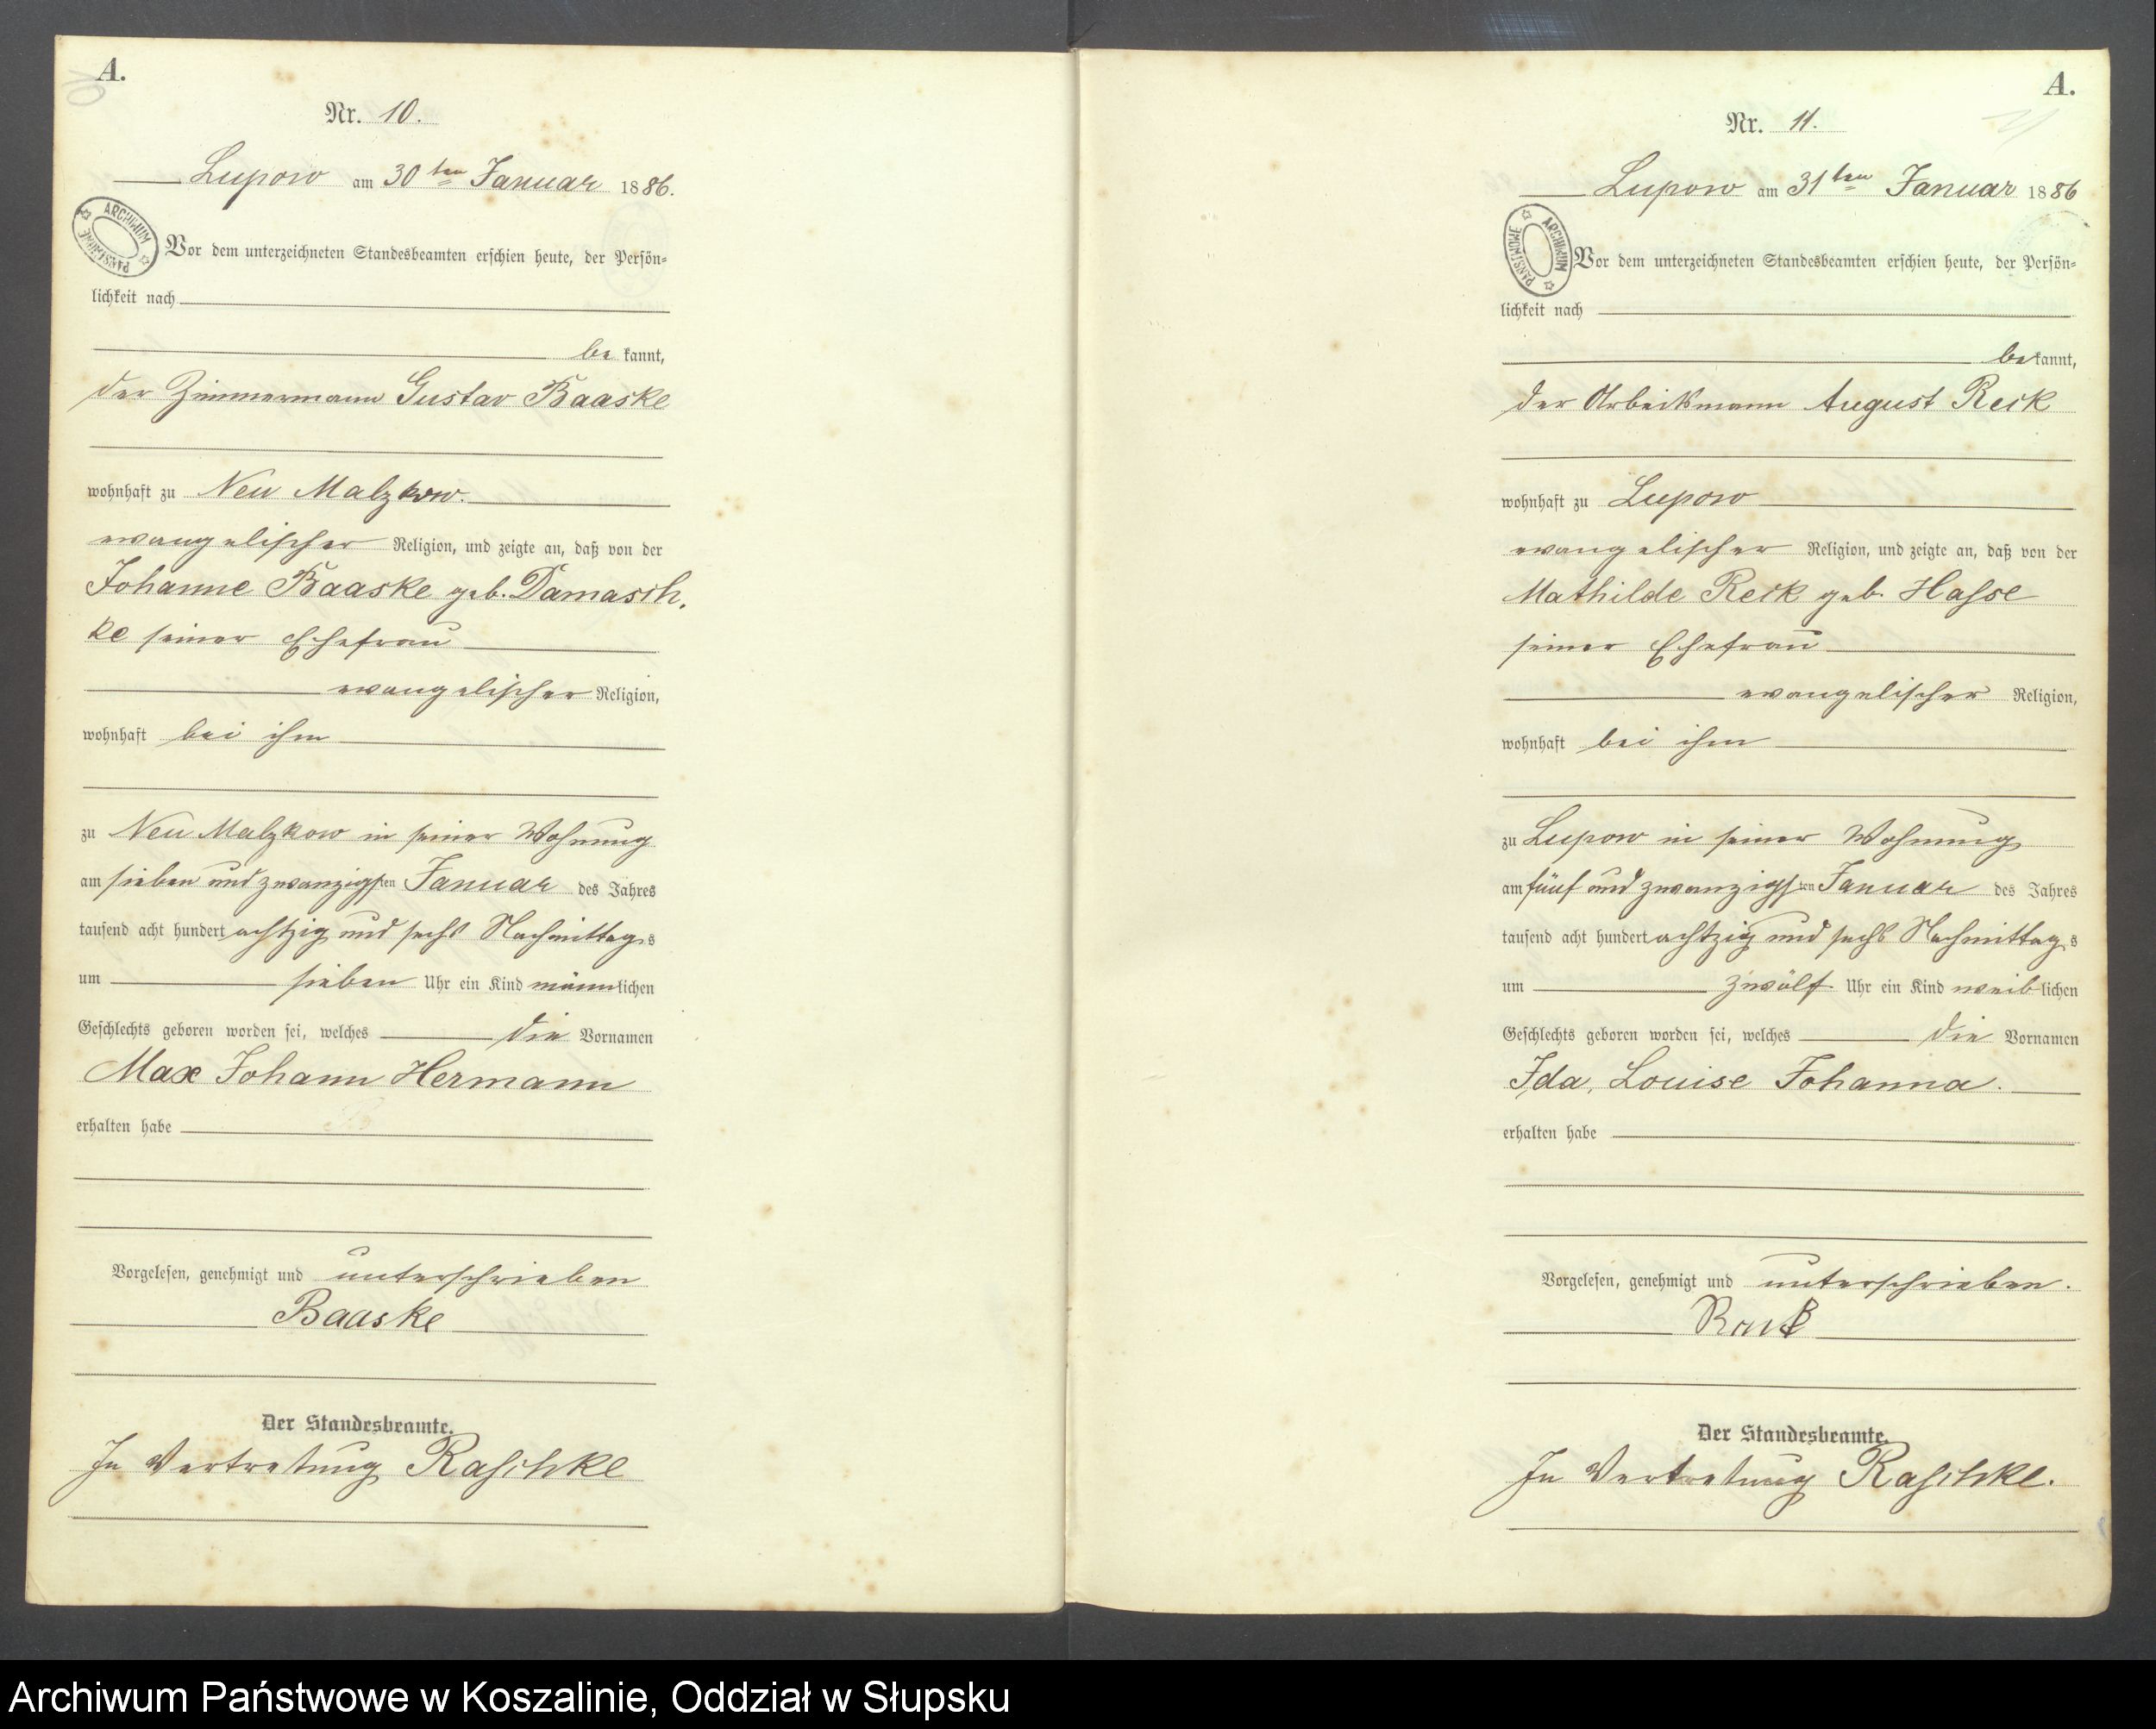 A.
Nr. 10.
Lupow am 30ten Januar 1886.
ARCHIWUM PAŃSTWOWE
Vor dem unterzeichneten Standesbeamten erschien heute, der Persön-
lichkeit nach
be kannt,
der Zimmermann Gustav Baaske
wohnhaft zu Neu Malzkow.
evangelischer Religion, und zeigte an, daß von der
Johanne Baaske geb. Damasch-
ke seiner Ehefrau
evangelischer Religion,
wohnhaft bei ihm
zu Neu Malzkow in seiner Wohnung
am sieben und zwanzigsten Januar des Jahres
tausend acht hundert achtzig und sechs Nachmittags
um sieben Uhr ein Kind männlichen
Geschlechts geboren worden sei, welches die Vornamen
Max Johann Hermann
erhalten habe
Vorgelesen, genehmigt und unterschrieben
Baaske
Der Standesbeamte.
In Vertretung Raschke
A.
Nr. 11.
Lupow am 31ten Januar 1886
ARCHIWUM PAŃSTWOWE
Vor dem unterzeichneten Standesbeamten erschien heute, der Persön-
lichkeit nach
bekannt,
der Arbeitsmann August Reck
wohnhaft zu Lupow
evangelischer Religion, und zeigte an, daß von der
Mathilde Reck geb. Hasse
seiner Ehefrau
evangelischer Religion,
wohnhaft bei ihm
zu Lupow in seiner Wohnung
am fünf und zwanzigsten Januar des Jahres
tausend acht hundert achtzig und sechs Nachmittags
um zwölf Uhr ein Kind weiblichen
Geschlechts geboren worden sei, welches die Vornamen
Ida, Louise Johanna.
erhalten habe
Vorgelesen, genehmigt und unterschrieben.
Reck
Der Standesbeamte.
In Vertretung Raschke.
Archiwum Państwowe w Koszalinie, Oddział w Słupsku